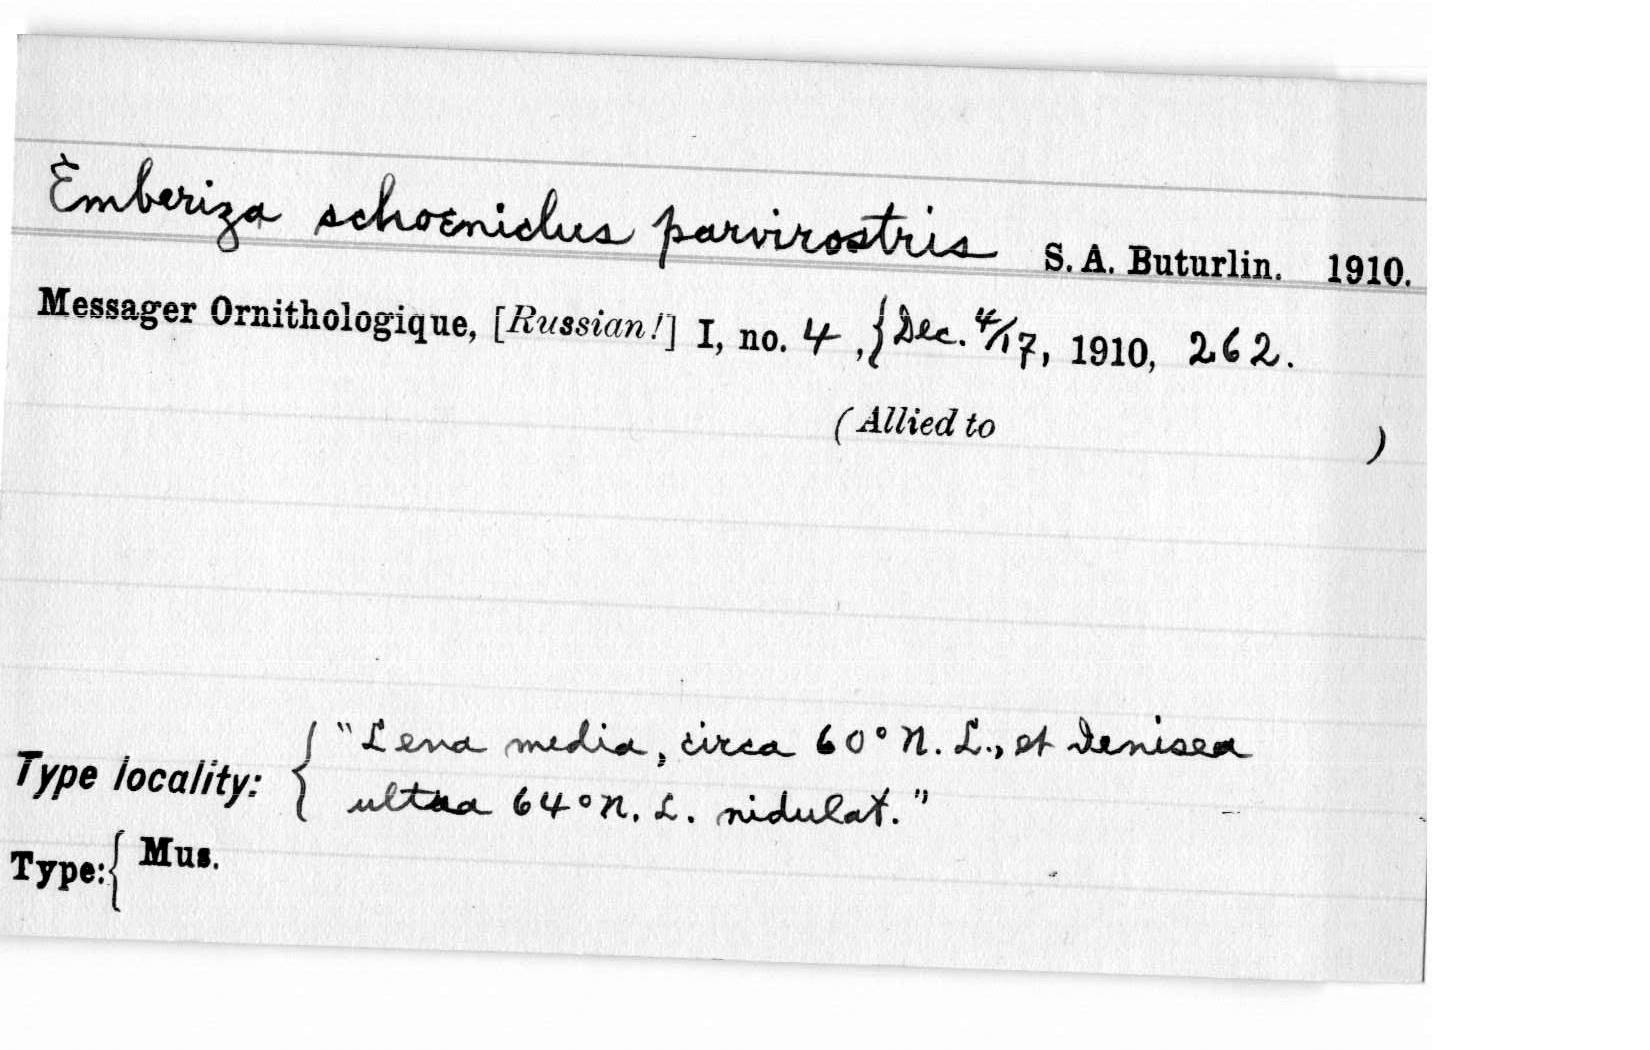 Emberiza schoeniclus parvirostris S. A. Buturlin. 1910.
Messager Ornithologique, [Russian!] I, no. 4, {Dec. 4/17, 1910, 262.
(Allied to )
Type locality: { "Lena media, circa 60° N. L., et Ienisea
ultra 64° N. L. nidulat."
Type: { Mus.